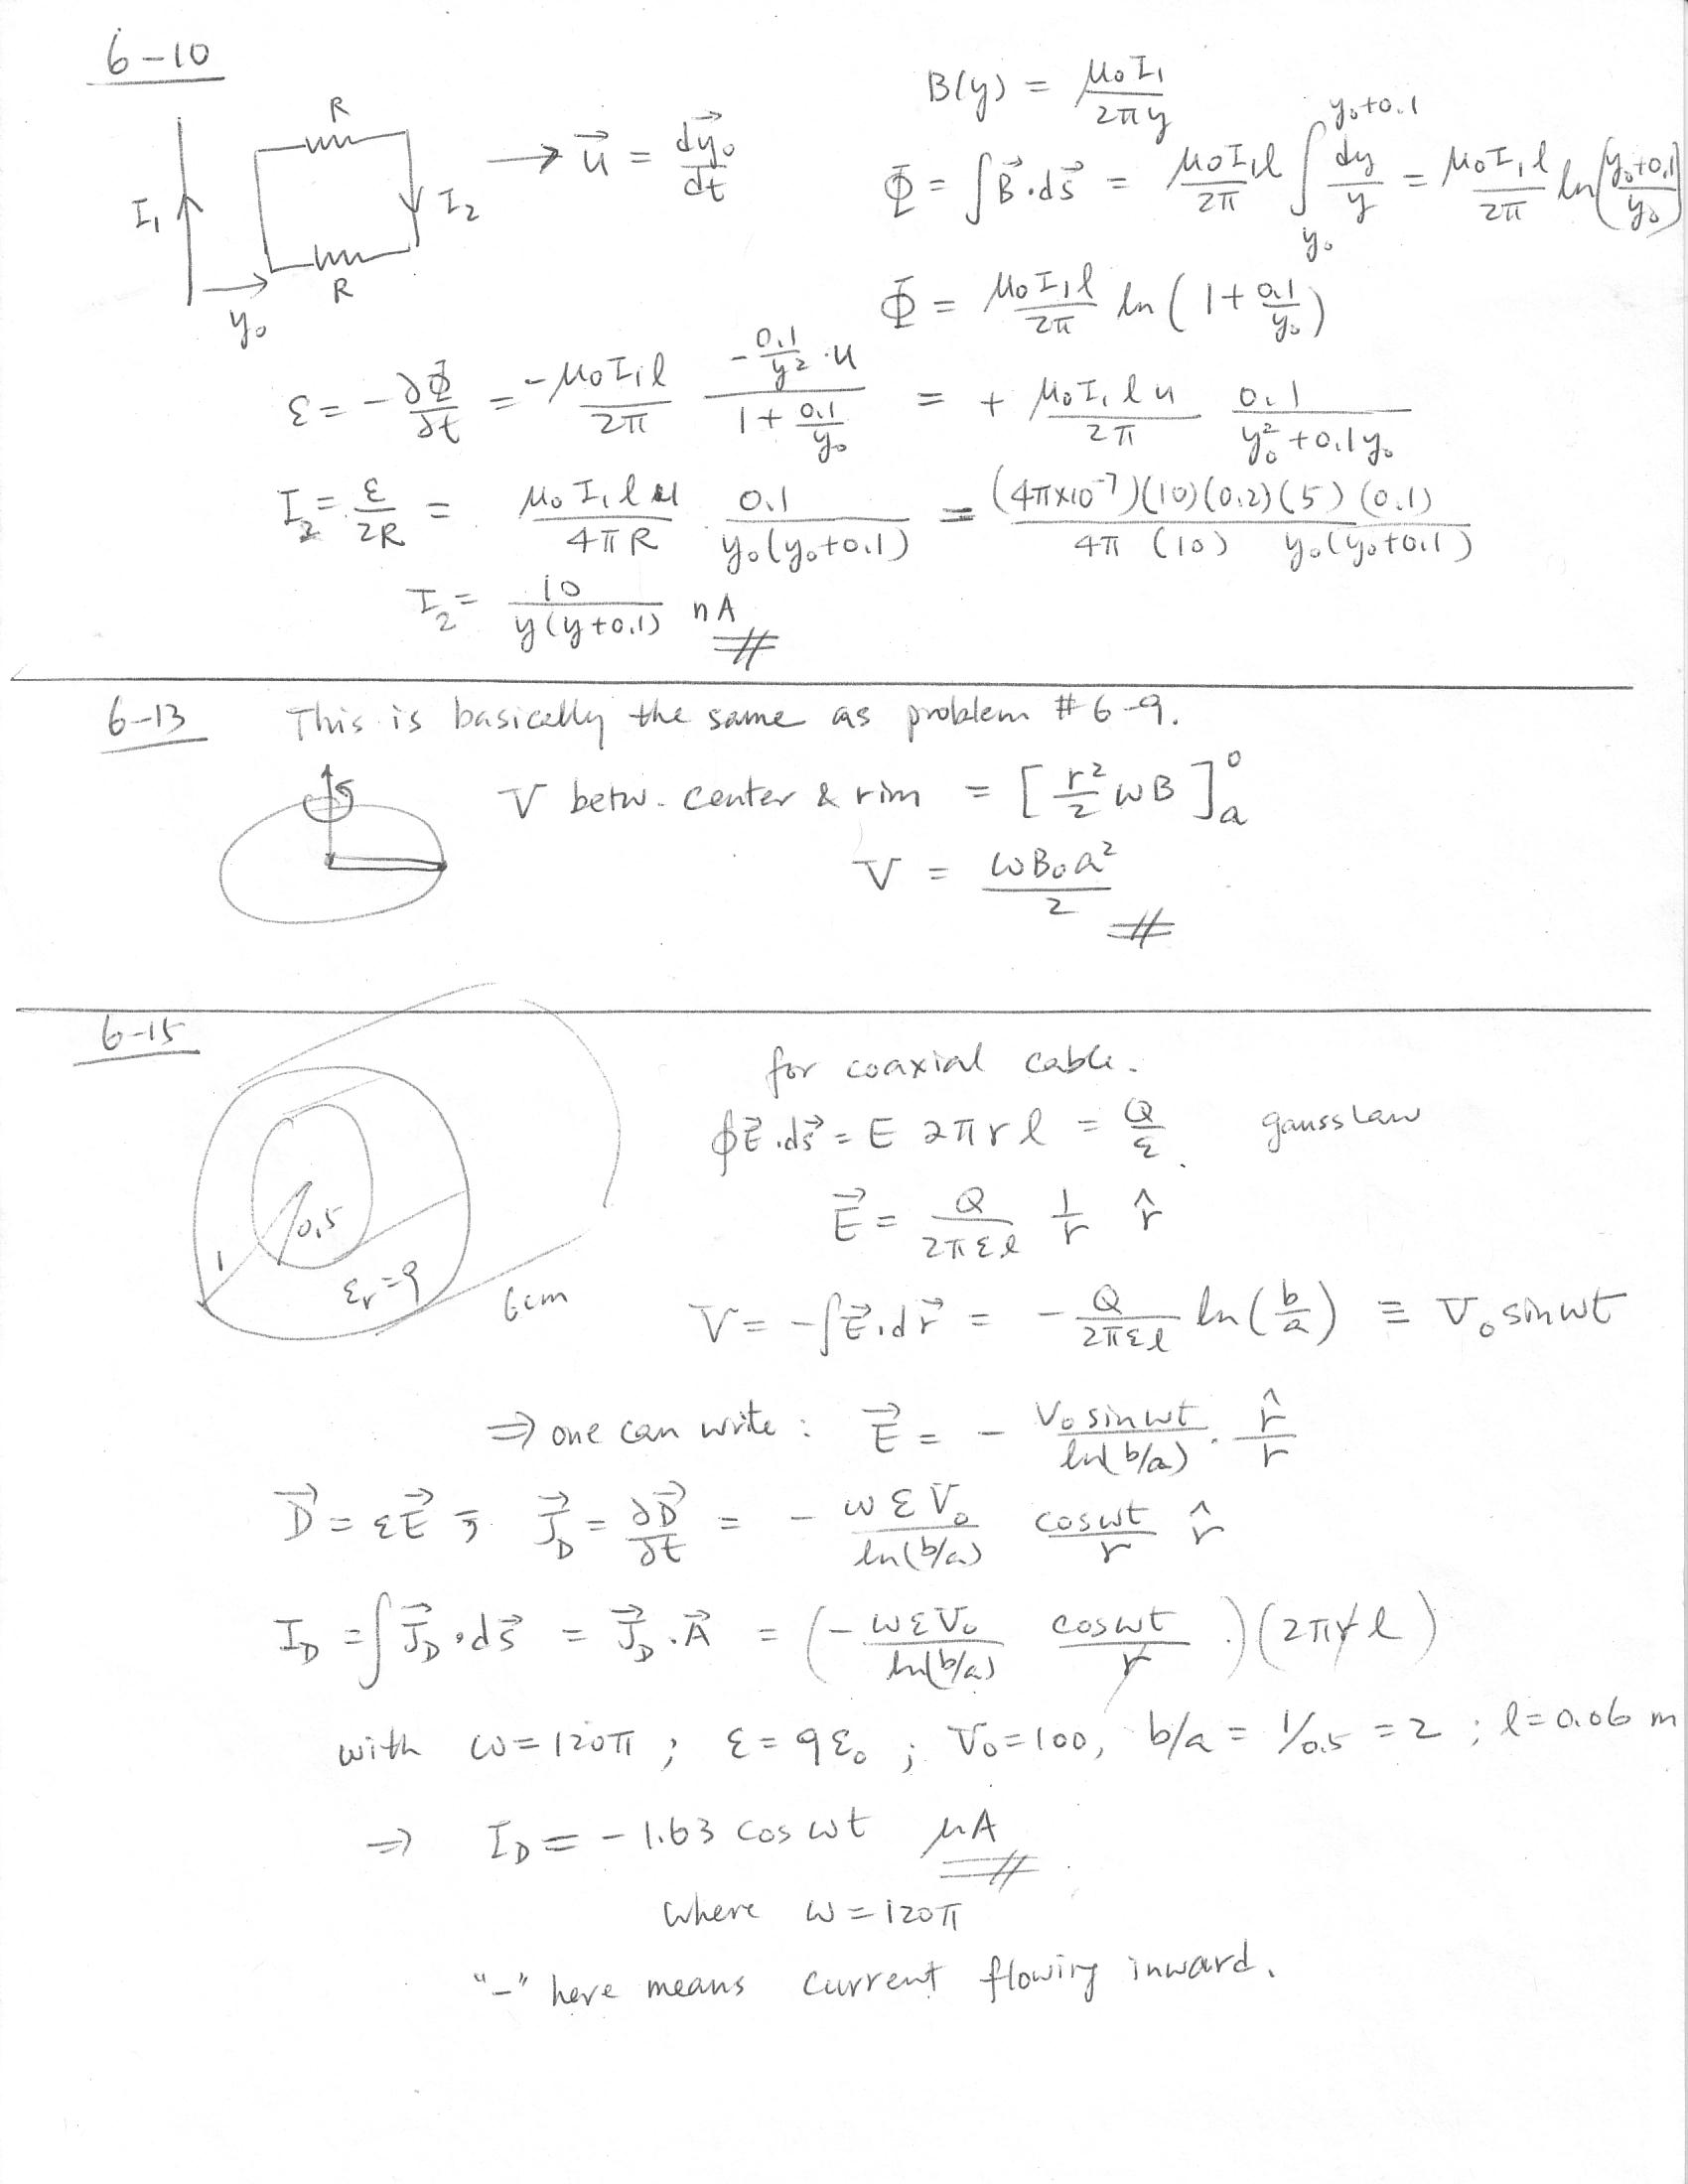 6-10
R
I₁
I₂
R
y₀
→ u⃗ = dy⃗₀/dt
B(y) = μ₀I₁/2πy
Φ = ∫B⃗·ds⃗ = μ₀I₁l/2π ∫_{y₀}^{y₀+0.1} dy/y = μ₀I₁l/2π ln((y₀+0.1)/y₀)
Φ = μ₀I₁l/2π ln(1 + 0.1/y₀)
ε = -∂Φ/∂t = -μ₀I₁l/2π (-0.1/y² · u)/(1 + 0.1/y₀) = + μ₀I₁lu/2π 0.1/(y₀² + 0.1y₀)
I₂ = ε/2R = μ₀I₁lu/4πR · 0.1/(y₀(y₀+0.1)) = (4π×10⁻⁷)(10)(0.2)(5)(0.1)/(4π (10) y₀(y₀+0.1))
I₂ = 10/(y(y+0.1)) nA
6-13 This is basically the same as problem #6-9.
V betw. center & rim = [r²/2 ωB]ₐ⁰
V = ωB₀a²/2
6-15
for coaxial cable.
∮E⃗·ds⃗ = E 2πrl = Q/ε. gauss law
0.5
1
εr=9
6cm
E⃗ = Q/2πεl 1/r r̂
V = -∫E⃗·dr⃗ = - Q/2πεl ln(b/a) = V₀ sinωt
⇒ one can write: E⃗ = - V₀ sinωt/ln(b/a) · r̂/r
D⃗ = εE⃗ ; J⃗_D = ∂D⃗/∂t = - ωεV₀/ln(b/a) cosωt/r r̂
I_D = ∫J⃗_D·ds⃗ = J⃗_D·A⃗ = (- ωεV₀/ln(b/a) cosωt/r·)(2πrl)
with ω=120π ; ε=9ε₀ ; V₀=100, b/a = 1/0.5 = 2 ; l=0.06 m
⇒ I_D = -1.63 cos ωt μA
where ω=120π
"-" here means current flowing inward.